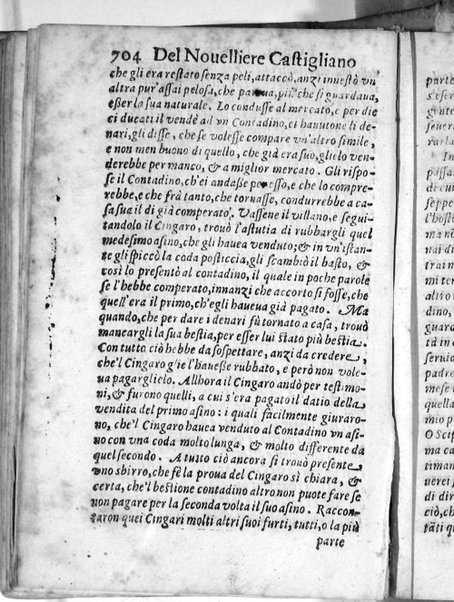 704 Del Nouelliere Castigliano
che gli era restato senza peli, attaccò, anzi innestò vn'
altra pur'assai pelosa, che parua, più che si guardaua,
esser la sua naturale. Lo condusse al mercato, e per die
ci ducati il vendè ad vn Contadino, ei hauutone li de-
nari, gli disse, che se volesse compare vn'altro simile,
e non men buono di quello, che già era suo, glielo ven-
derebbe per manco, & a miglior mercato. Gli rispo-
se il Contadino, ch'ei andasse per esso, e che lo compre-
rebbe, e che frà tanto, che tornasse, condurrebbe a ca-
sa sua il di già comperato. Vassene il villano, e segui-
tandolo il Cingaro, trouò l'astutia di rubbargli quel
medesimo asino, che gli hauea venduto; & in vn'istan-
te gli spiccò la coda posticcia, gli scambiò il basto, &
così lo presentò al contadino, il quale in poche parole
se l'hebbe comperato, innanzi che accorto si fosse, che
quell'era il primo, ch'egli haueua già pagato. Ma
quando, che per dare i denari fù tornato a casa, trouò
mancargli la sua bestia, per esser lui stato più bestia.
Con tutto ciò hebbe da sospettare, anzi da credere,
che'l Cingaro glie l'hauesse rubbato, e però non vole-
ua pagarglielo. Allhora il Cingaro andò per testimo-
ni, & furono quelli, a cui s'era pagato il datio della
vendita del primo asino: i quali facilmente giuraro-
no, che'l Cingaro hauea venduto al Contadino vn asi-
no con vna coda molto lunga, & molto differente da
quel secondo. A tutto ciò ancora si trouò presente
vno sbirro, che fè la proua del Cingaro sì chiara, &
certa, che'l bestione contadino altro non puote fare se
non pagare per la seconda volta il suo asino. Raccon-
taron quei Cingari molti altri suoi furti, tutti, o la più
parte